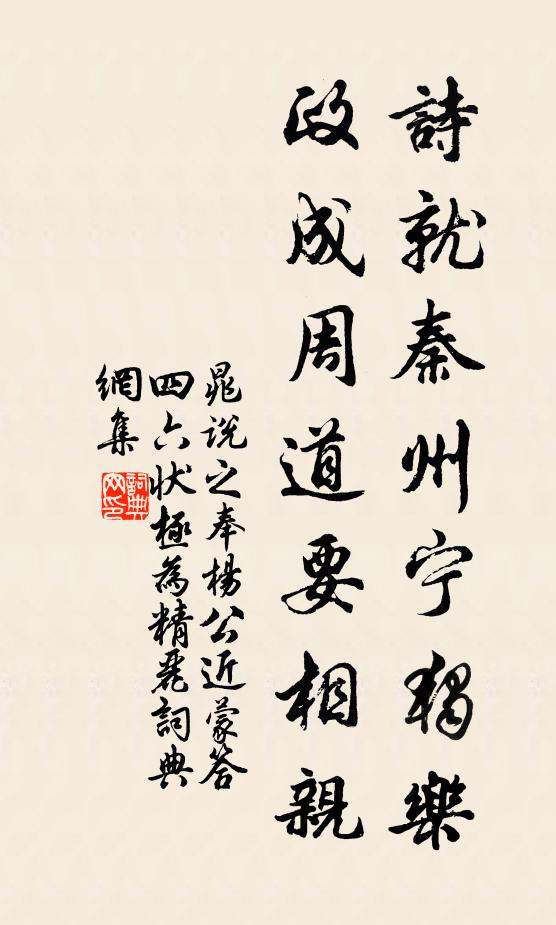 詩就秦州宁獨樂
政成周道要相親
晁說之奉楊公近蒙答
四六狀極為精麗詞典
網集
詞典
网印